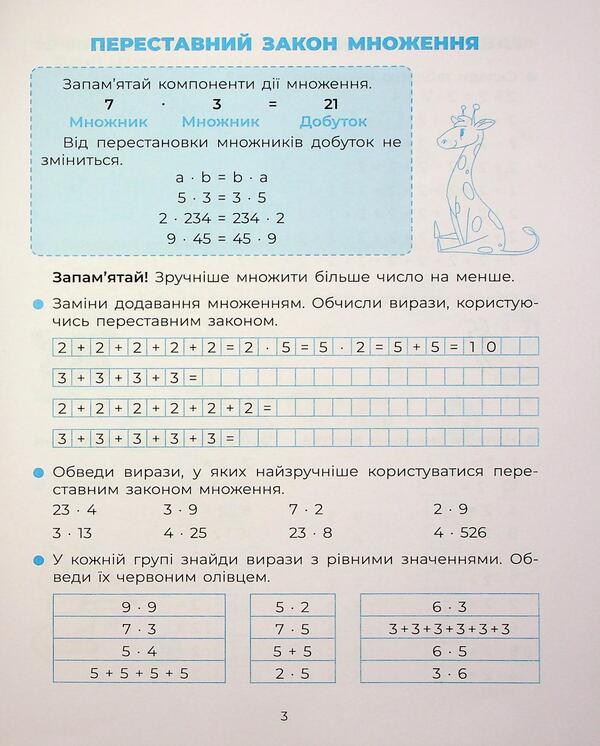 ПЕРЕСТАВНИЙ ЗАКОН МНОЖЕННЯ
Запам'ятай компоненти дії множення.
7 · 3 = 21
Множник Множник Добуток
Від перестановки множників добуток не
зміниться.
a · b = b · a
5 · 3 = 3 · 5
2 · 234 = 234 · 2
9 · 45 = 45 · 9
Запам'ятай! Зручніше множити більше число на менше.
Заміни додавання множенням. Обчисли вирази, користую-
чись переставним законом.
2 + 2 + 2 + 2 + 2 = 2 · 5 = 5 · 2 = 5 + 5 = 1 0
3 + 3 + 3 + 3 =
2 + 2 + 2 + 2 + 2 + 2 + 2 =
3 + 3 + 3 + 3 + 3 + 3 =
Обведи вирази, у яких найзручніше користуватися пере-
ставним законом множення.
23 · 4 3 · 9 7 · 2 2 · 9
3 · 13 4 · 25 23 · 8 4 · 526
У кожній групі знайди вирази з рівними значеннями. Об-
веди їх червоним олівцем.
9 · 9 5 · 2 6 · 3
7 · 3 7 · 5 3+3+3+3+3+3
5 · 4 5 + 5 6 · 5
5 + 5 + 5 + 5 2 · 5 3 · 6
3